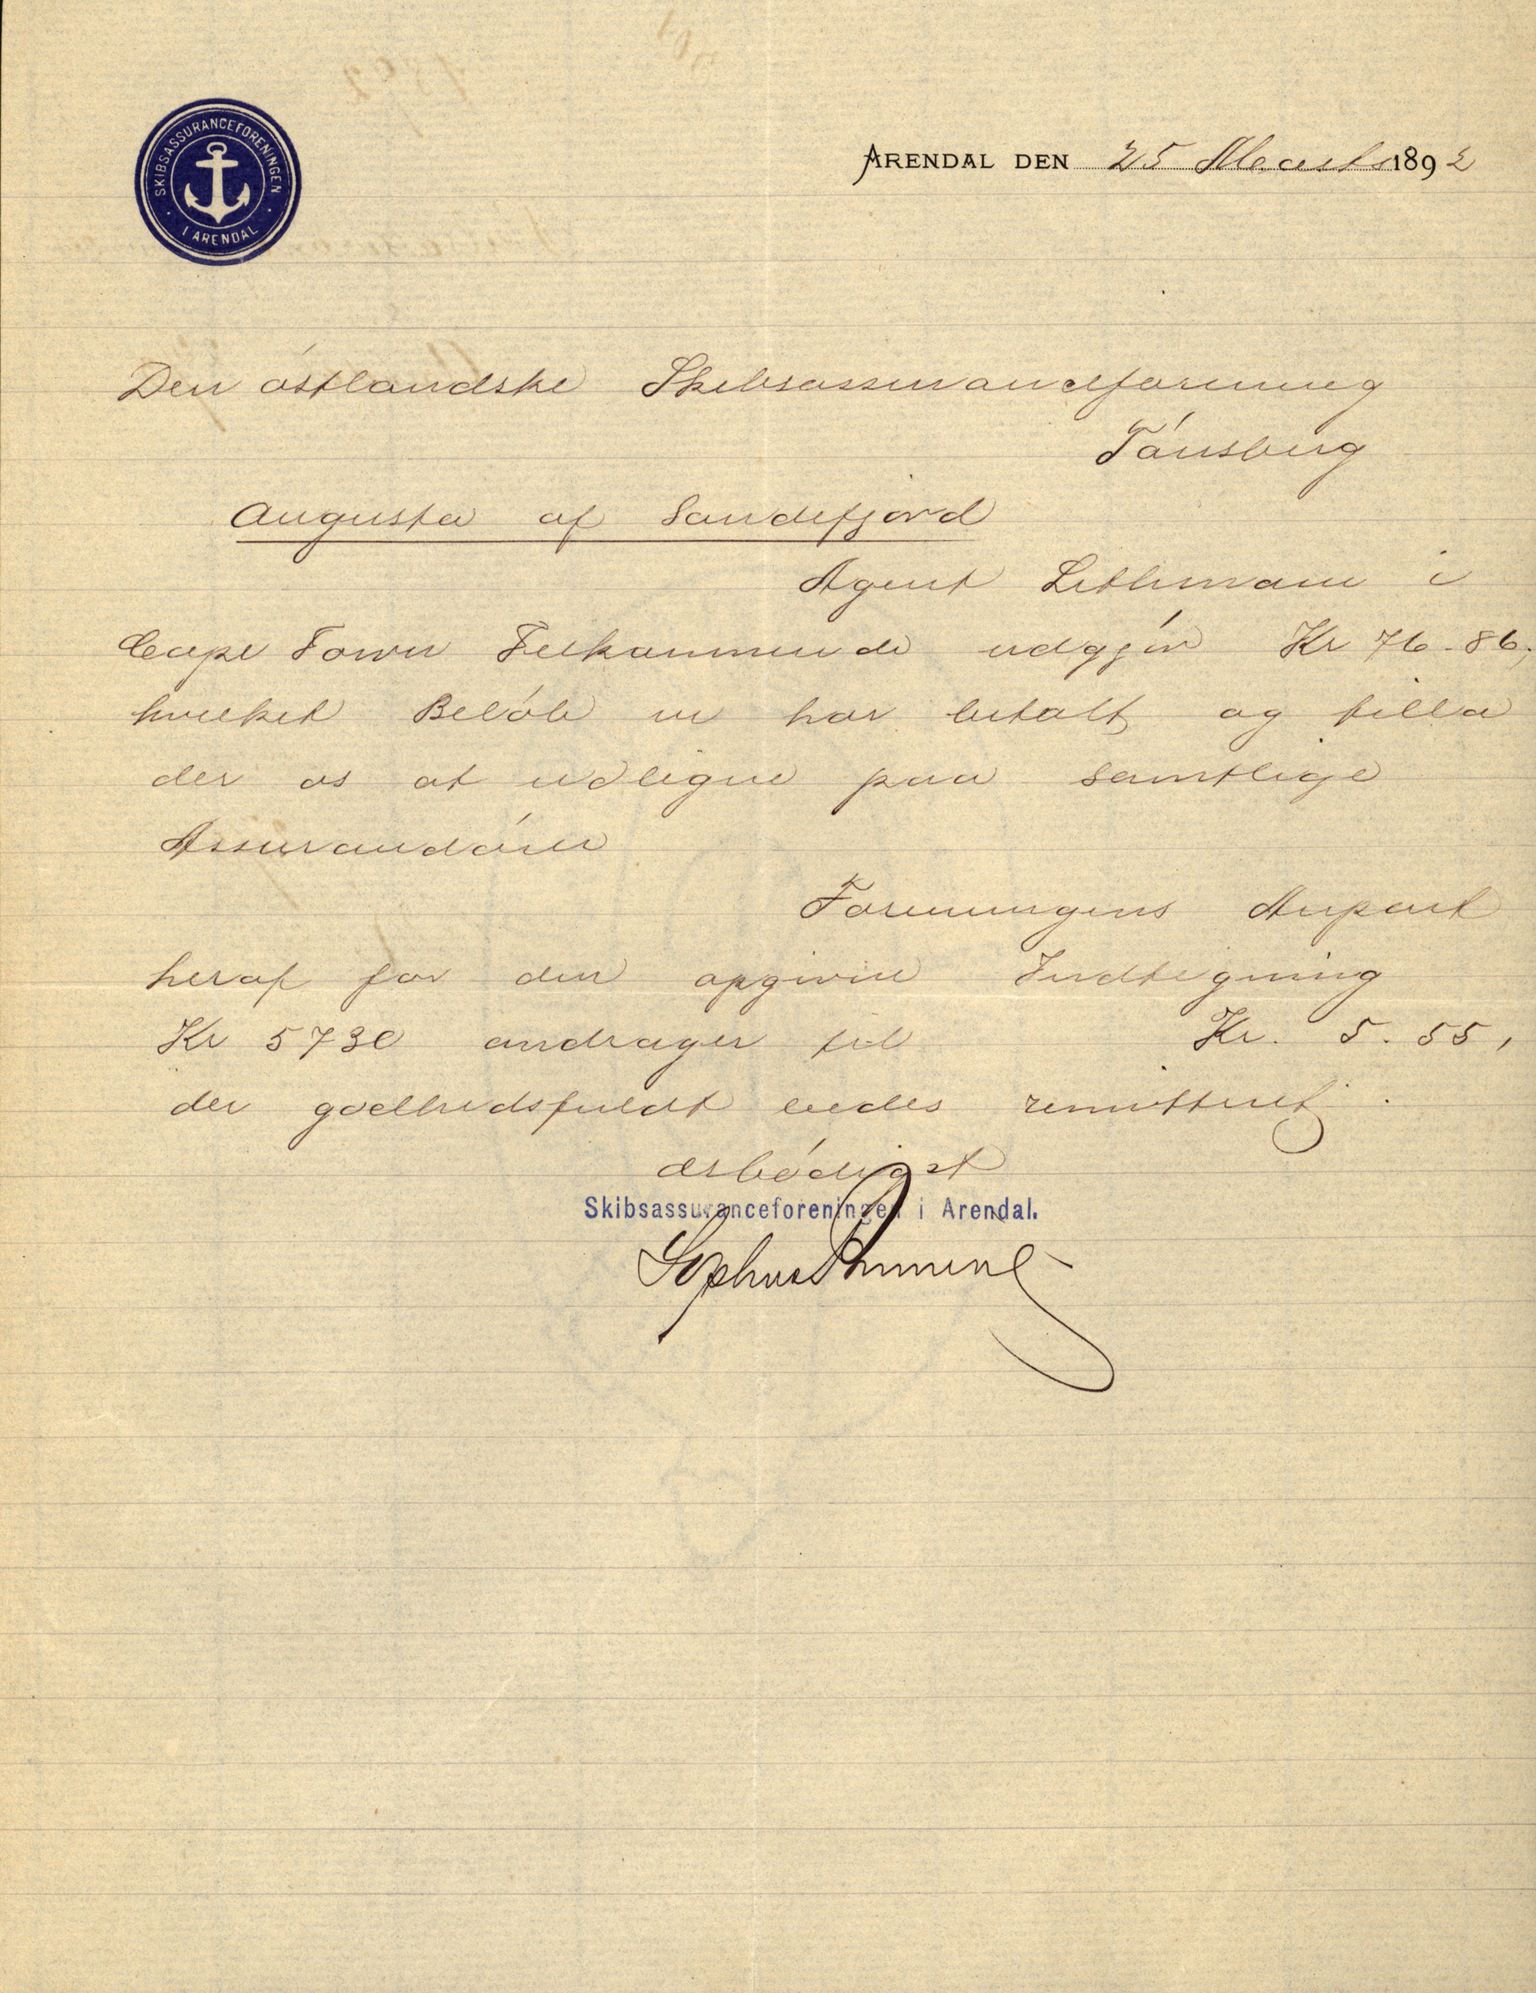 SKIBSASSURANCEFORENINGEN
I ARENDAL
ARENDAL DEN 25 Marts 1892
Den östlandske Skibsassuranceforening
Tónsberg
Augusta af Sandefjord
Agent i
Cape Town Tilkommende udgjór Kr 76.86,
hvilket Belób vi har betalt og tilla
der os at udligne paa samtlige
Assurandórer
Foreningens Anpart
heraf for den opgivne Indtegning
Kr 5730 andrager til Kr. 5.55,
der godhedsfuldt bedes remitteret.
ærbódigst
Skibsassuranceforeningen i Arendal.
Sophus